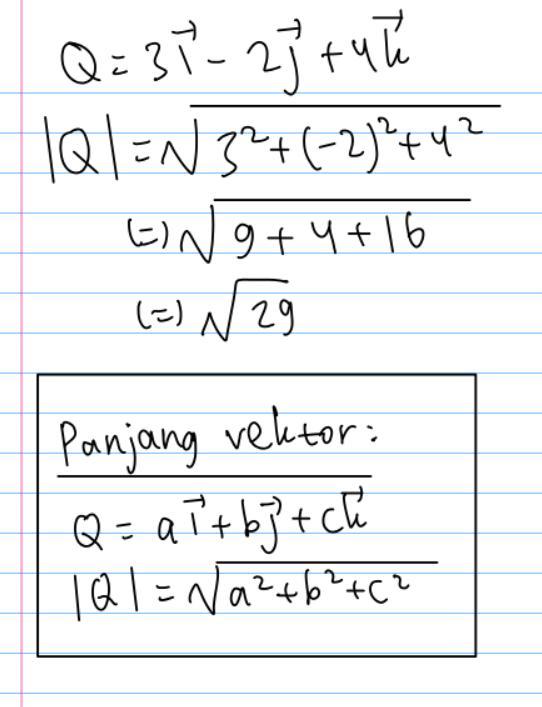 Q = 3i⃗ - 2j⃗ + 4k⃗
|Q| = √(3² + (-2)² + 4²)
(=) √(9 + 4 + 16)
(=) √29
Panjang vektor:
Q = ai⃗ + bj⃗ + ck⃗
|Q| = √(a² + b² + c²)